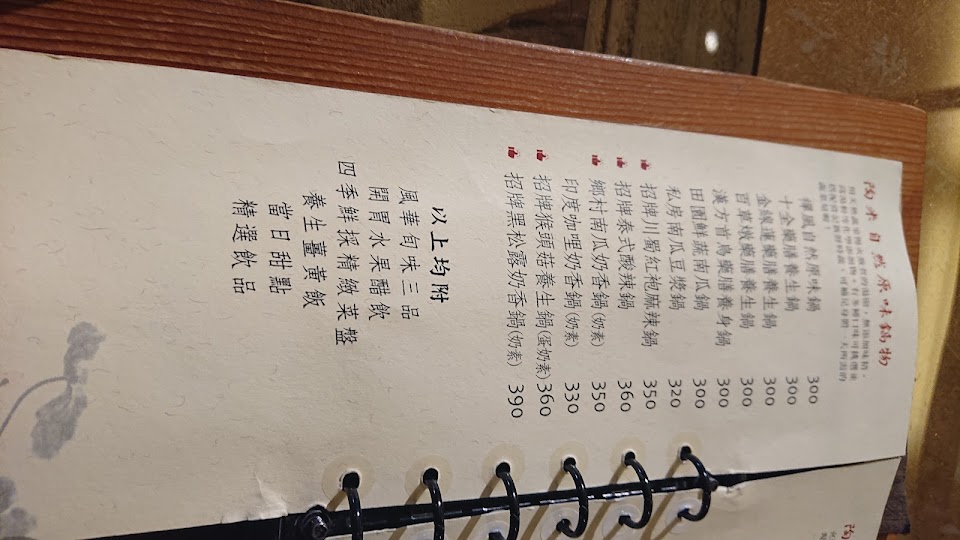 陶水自然原味鍋物
禪風自然原味鍋 300
十全藥膳養生鍋 300
金線蓮藥膳養生鍋 300
百草燉藥膳養生鍋 300
漢方首烏藥膳養身鍋 300
田園鮮蔬南瓜鍋 300
私房南瓜豆漿鍋 320
招牌川蜀紅袍麻辣鍋 350
招牌泰式酸辣鍋 360
鄉村南瓜奶香鍋(奶素) 350
印度咖哩奶香鍋(奶素) 330
招牌猴頭菇養生鍋(蛋奶素) 360
招牌黑松露奶香鍋(奶素) 390
以上均附
風華旬味三品
開胃水果醋飲
四季鮮採精緻菜盤
養生薑黃飯
當日甜點
精選飲品